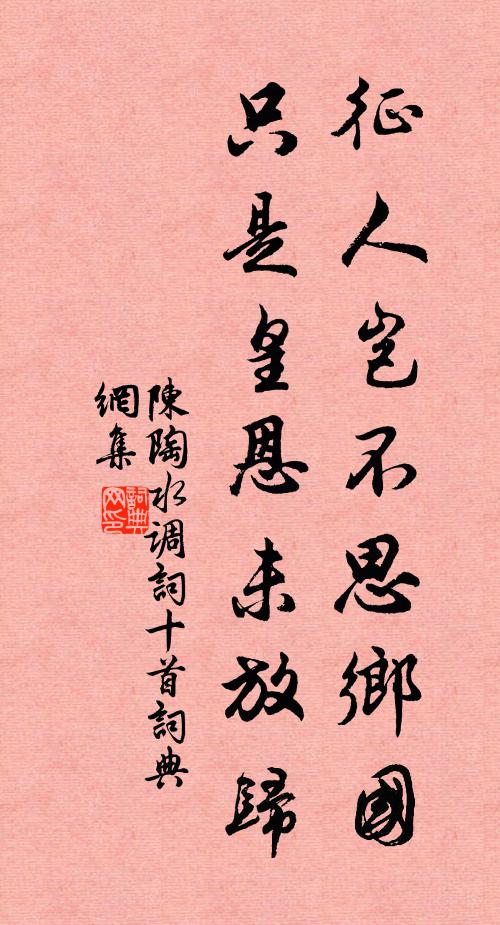 征人岂不思鄉國
只是皇恩未放歸
陳陶水调詞十首詞典
網集
詞典网印